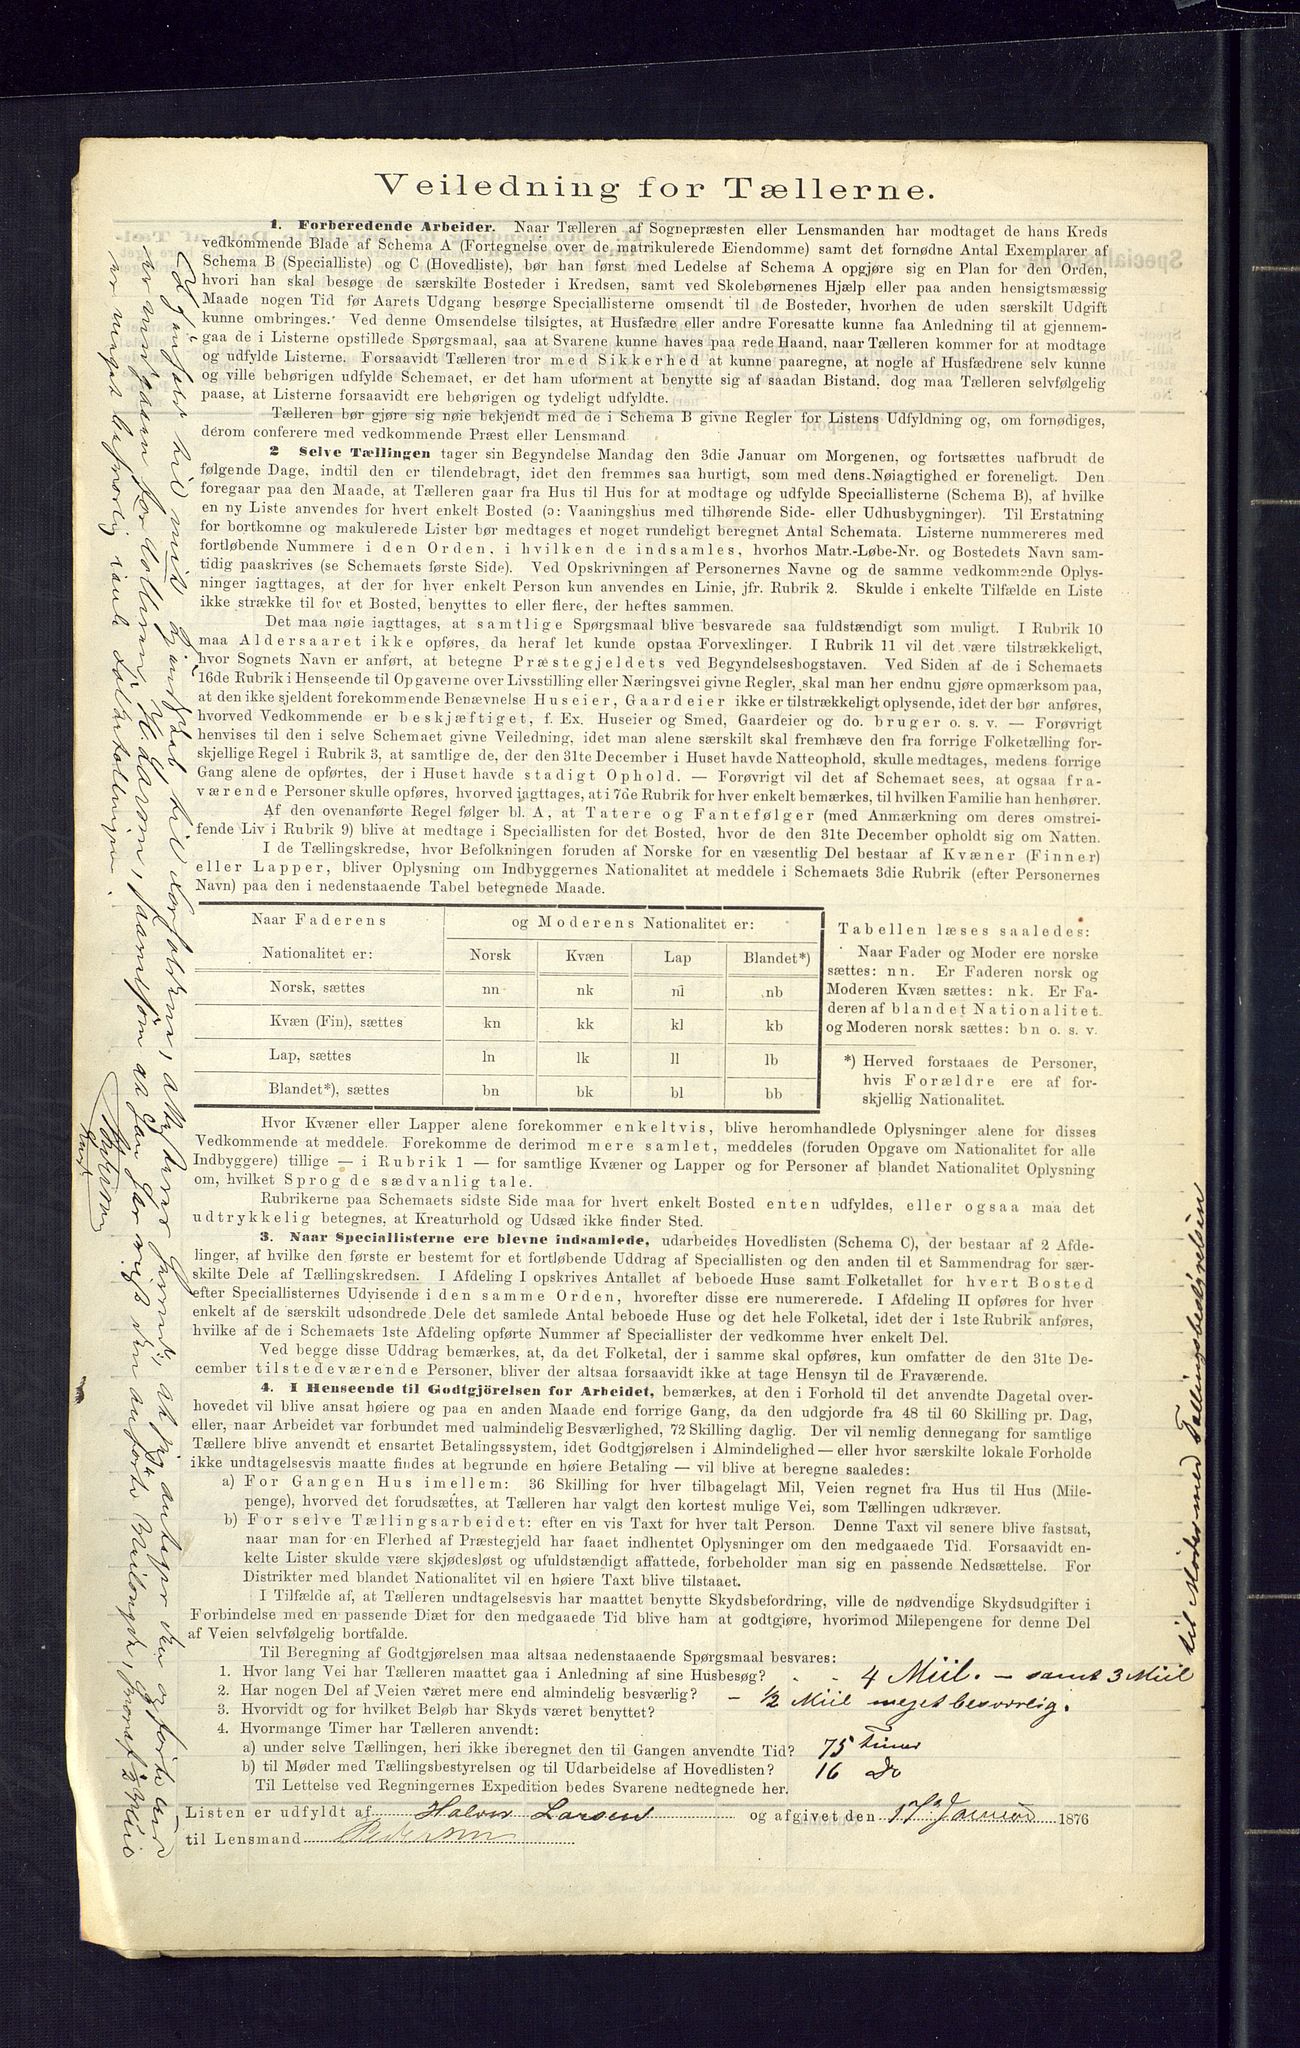 Veiledning for Tællerne.
1. Forberedende Arbeider. Naar Tælleren af Sognepræsten eller Lensmanden har modtaget de hans Kreds
vedkommende Blade af Schema A (Fortegnelse over de matrikulerede Eiendomme) samt det fornødne Antal Exemplarer af
Schema B (Specialliste) og C (Hovedliste), bør han først med Ledelse af Schema A opgjøre sig en Plan for den Orden,
hvori han skal besøge de særskilte Bosteder i Kredsen, samt ved Skolebørnenes Hjælp eller paa anden hensigtsmæssig
Maade nogen Tid før Aarets Udgang besørge Speciallisterne omsendt til de Bosteder, hvorhen de uden særskilt Udgift
kunne ombringes. Ved denne Omsendelse tilsigtes, at Husfædre eller andre Foresatte kunne faa Anledning til at gjennem-
gaa de i Listerne opstillede Spørgsmaal, saa at Svarene kunne haves paa rede Haand, naar Tælleren kommer for at modtage
og udfylde Listerne. Forsaavidt Tælleren tror med Sikkerhed at kunne paaregne, at nogle af Husfædrene selv kunne
og ville behørigen udfylde Schemaet, er det ham uforment at benytte sig af saadan Bistand, dog maa Tælleren selvfølgelig
paase, at Listerne forsaavidt ere behørigen og tydeligt udfyldte.
Tælleren bør gjøre sig nøie bekjendt med de i Schema B givne Regler for Listens Udfyldning og, om fornødiges,
derom conferere med vedkommende Præst eller Lensmand
2 Selve Tællingen tager sin Begyndelse Mandag den 3die Januar om Morgenen, og fortsættes uafbrudt de
følgende Dage, indtil den er tilendebragt, idet den fremmes saa hurtigt, som med dens Nøiagtighed er foreneligt. Den
foregaar paa den Maade, at Tælleren gaar fra Hus til Hus for at modtage og udfylde Speciallisterne (Schema B), af hvilke
en ny Liste anvendes for hvert enkelt Bosted (ɔ: Vaaningshus med tilhørende Side- eller Udhusbygninger). Til Erstatning
for bortkomne og makulerede Lister bør medtages et noget rundeligt beregnet Antal Schemata. Listerne nummereres med
fortløbende Nummere i den Orden, i hvilken de indsamles, hvorhos Matr.-Løbe-Nr. og Bostedets Navn sam-
tidig paaskrives (se Schemaets første Side). Ved Opskrivningen af Personernes Navne og de samme vedkommende Oplys-
ninger iagttages, at der for hver enkelt Person kun anvendes en Linie, jfr. Rubrik 2. Skulde i enkelte Tilfælde en Liste
ikke strække til for et Bosted, benyttes to eller flere, der heftes sammen.
Det maa nøie iagttages, at samtlige Spørgsmaal blive besvarede saa fuldstændigt som muligt. I Rubrik 10
maa Aldersaaret ikke opføres, da heraf let kunde opstaa Forvexlinger. I Rubrik 11 vil det være tilstrækkeligt,
hvor Sognets Navn er anført, at betegne Præstegjeldets ved Begyndelsesbogstaven. Ved Siden af de i Schemaets
16de Rubrik i Henseende til Opgaverne over Livsstilling eller Næringsvei givne Regler, skal man her endnu gjøre opmærksom paa,
at den ikke sjeldent forekommende Benævnelse Huseier, Gaardeier ikke er tilstrækkeligt oplysende, idet der bør anføres,
hvorved Vedkommende er beskjæftiget, f. Ex. Huseier og Smed, Gaardeier og do. bruger o. s. v. — Forøvrigt
henvises til den i selve Schemaet givne Veiledning, idet man alene særskilt skal fremhæve den fra forrige Folketælling for-
skjellige Regel i Rubrik 3, at samtlige de, der den 31te December i Huset havde Natteophold, skulle medtages, medens forrige
Gang alene de opførtes, der i Huset havde stadigt Ophold. — Forøvrigt vil det af Schemaet sees, at ogsaa fra-
værende Personer skulle opføres, hvorved iagttages, at i 7de Rubrik for hver enkelt bemærkes, til hvilken Familie han henhører.
Af den ovenanførte Regel følger bl. A, at Tatere og Fantefølger (med Anmærkning om deres omstrei-
fende Liv i Rubrik 9) blive at medtage i Speciallisten for det Bosted, hvor de den 31te December opholdt sig om Natten.
I de Tællingskredse, hvor Befolkningen foruden af Norske for en væsentlig Del bestaar af Kvæner (Finner)
eller Lapper, bliver Oplysning om Indbyggernes Nationalitet at meddele i Schemaets 3die Rubrik (efter Personernes
Navn) paa den i nedenstaaende Tabel betegnede Maade.
Naar Faderens og Moderens Nationalitet er:
Nationalitet er: Norsk Kvæn Lap Blandet*)
Norsk, sættes nn nk nl nb
Kvæn (Fin), sættes kn kk kl kb
Lap, sættes ln lk ll lb
Blandet*), sættes bn bk bl bb
Tabellen læses saaledes:
Naar Fader og Moder ere norske
sættes: nn. Er Faderen norsk og
Moderen Kvæn sættes: nk. Er Fa-
deren af blandet Nationalitet
og Moderen norsk sættes: bn o. s. v.
*) Herved forstaaes de Personer,
hvis Forældre ere af for-
skjellig Nationalitet.
Hvor Kvæner eller Lapper alene forekommer enkeltvis, blive heromhandlede Oplysninger alene for disses
Vedkommende at meddele. Forekomme de derimod mere samlet, meddeles (foruden Opgave om Nationalitet for alle
Indbyggere) tillige — i Rubrik 1 — for samtlige Kvæner og Lapper og for Personer af blandet Nationalitet Oplysning
om, hvilket Sprog de sædvanlig tale.
Rubrikerne paa Schemaets sidste Side maa for hvert enkelt Bosted enten udfyldes, eller ogsaa maa det
udtrykkelig betegnes, at Kreaturhold og Udsæd ikke finder Sted.
3. Naar Speciallisterne ere blevne indsamlede, udarbeides Hovedlisten (Schema C), der bestaar af 2 Afde-
linger, af hvilke den første er bestemt for et fortløbende Uddrag af Speciallisten og den anden til et Sammendrag for sær-
skilte Dele af Tællingskredsen. I Afdeling I opskrives Antallet af beboede Huse samt Folketallet for hvert Bosted
efter Speciallisternes Udvisende i den samme Orden, hvorefter disse ere numererede. I Afdeling II opføres for hver
enkelt af de særskilt udsondrede Dele det samlede Antal beboede Huse og det hele Folketal, idet der i 1ste Rubrik anføres,
hvilke af de i Schemaets 1ste Afdeling opførte Nummer af Speciallister der vedkomme hver enkelt Del.
Ved begge disse Uddrag bemærkes, at, da det Folketal, der i samme skal opføres, kun omfatter de den 31te De-
cember tilstedeværende Personer, bliver der altsaa forsaavidt ikke at tage Hensyn til de Fraværende.
4. I Henseende til Godtgjörelsen for Arbeidet, bemærkes, at den i Forhold til det anvendte Dagetal over-
hovedet vil blive ansat høiere og paa en anden Maade end forrige Gang, da den udgjorde fra 48 til 60 Skilling pr. Dag,
eller, naar Arbeidet var forbundet med ualmindelig Besværlighed, 72 Skilling daglig. Der vil nemlig dennegang for samtlige
Tællere blive anvendt et ensartet Betalingssystem, idet Godtgjørelsen i Almindelighed — eller hvor særskilte lokale Forholde
ikke undtagelsesvis maatte findes at begrunde en høiere Betaling — vil blive at beregne saaledes:
a) For Gangen Hus imellem: 36 Skilling for hver tilbagelagt Mil, Veien regnet fra Hus til Hus (Mile-
penge), hvorved det forudsættes, at Tælleren har valgt den kortest mulige Vei, som Tællingen udkræver.
b) For selve Tællingsarbeidet: efter en vis Taxt for hver talt Person. Denne Taxt vil senere blive fastsat,
naar man for en Flerhed af Præstegjeld har faaet indhentet Oplysninger om den medgaaede Tid. Forsaavidt en-
kelte Lister skulde være skjødesløst og ufuldstændigt affattede, forbeholder man sig en passende Nedsættelse. For
Distrikter med blandet Nationalitet vil en høiere Taxt blive tilstaaet.
I Tilfælde af, at Tælleren undtagelsesvis har maattet benytte Skydsbefordring, ville de nødvendige Skydsudgifter i
Forbindelse med en passende Diæt for den medgaaede Tid blive ham at godtgjøre, hvorimod Milepengene for denne Del
af Veien selvfølgelig bortfalde.
Til Beregning af Godtgjørelsen maa altsaa nedenstaaende Spørgsmaal besvares:
1. Hvor lang Vei har Tælleren maattet gaa i Anledning af sine Husbesøg? 4 Miil. — samt 3 Miil
til Möder med Tællingsbestyrelsen
2. Har nogen Del af Veien været mere end almindelig besværlig? — 1/2 Miil meget besværlig.
3. Hvorvidt og for hvilket Beløb har Skyds været benyttet?
4. Hvormange Timer har Tælleren anvendt:
a) under selve Tællingen, heri ikke iberegnet den til Gangen anvendte Tid? 75 Timer
b) til Møder med Tællingsbestyrelsen og til Udarbeidelse af Hovedlisten? 16 Do
Til Lettelse ved Regningernes Expedition bedes Svarene nedtegnede her.
Listen er udfyldt af Halvor Larsen og afgivet den 17de Januar 1876
til Lensmand Pedersen